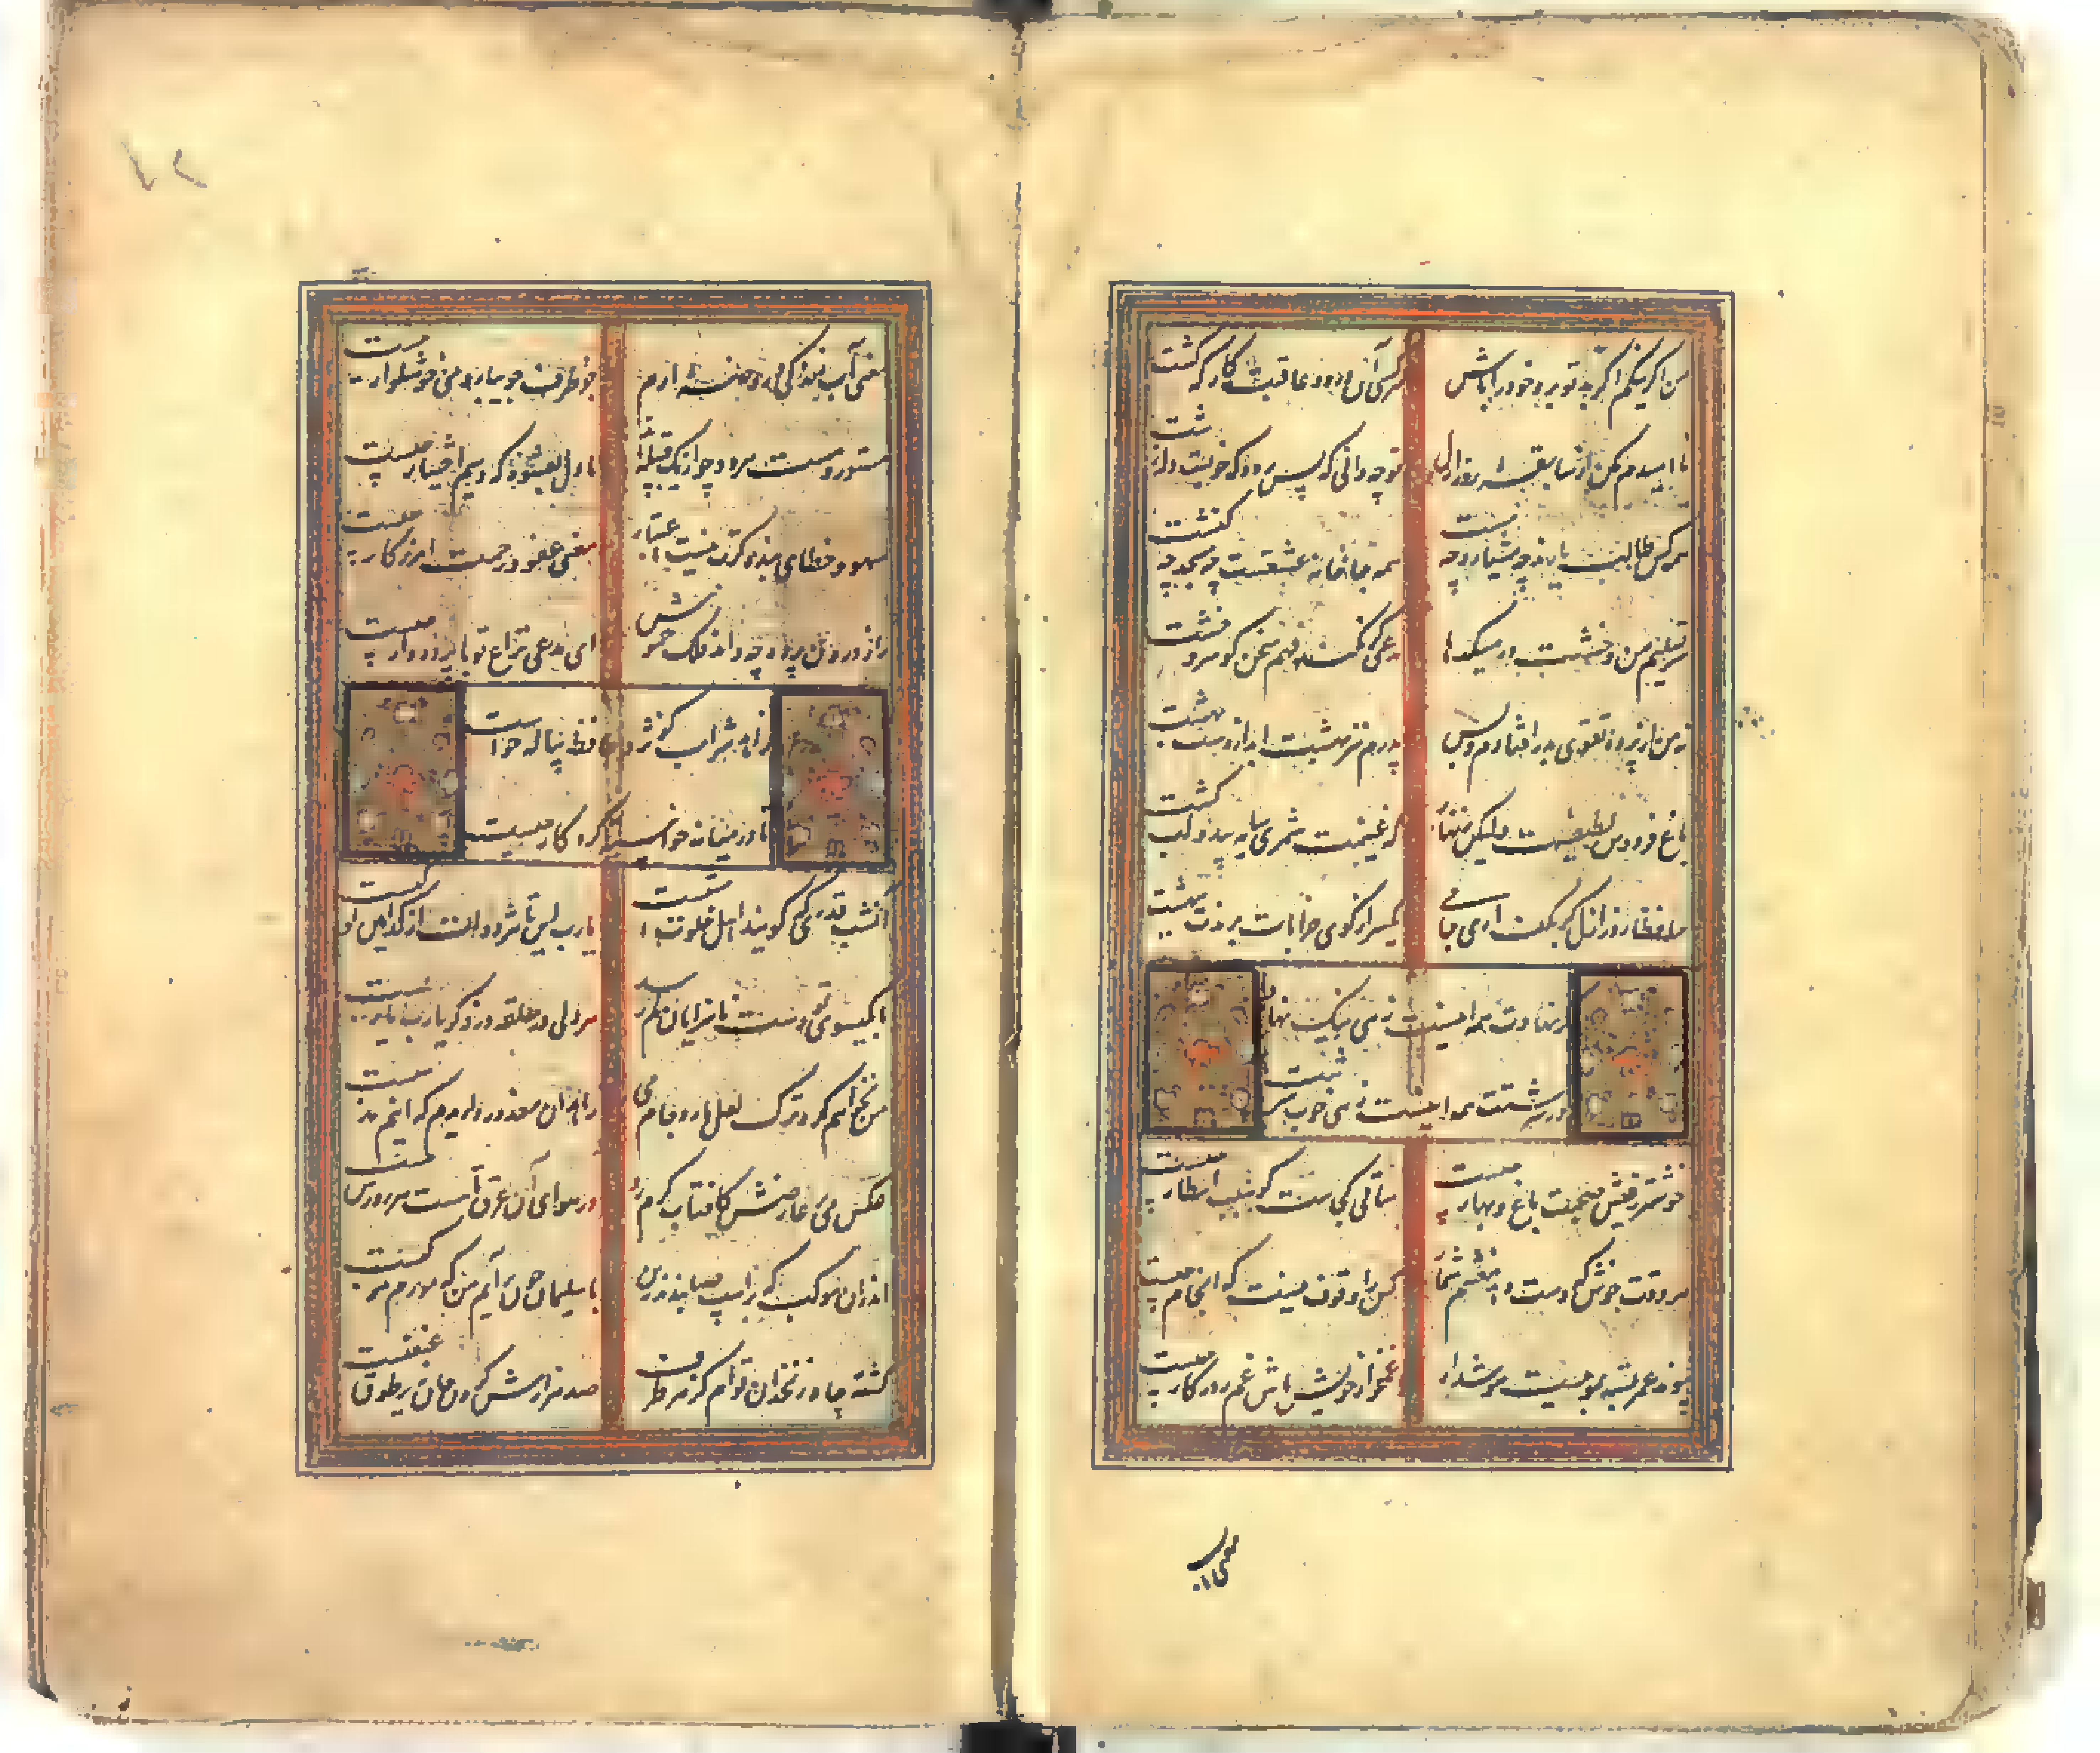 من اگر نیکم اگر بد تو برو خود را باش
هر کسی آن درود عاقبت کار که کشت
نا امیدم مکن از سابقه روز ازل
تو چه دانی که پس پرده که خوبست و که زشت
همه کس طالب یارند چه هشیار و چه مست
همه جا خانه عشقست چه مسجد چه کنشت
سر تسلیم من و خشت در میکدها
مدعی گر نکند فهم سخن گو سر و خشت
نه من از پرده تقوی بدر افتادم و بس
پدرم نیز بهشت ابد از دست بهشت
باغ فردوس لطیفست ولیکن زنهار
که غنیمت شمری سایه بید و لب کشت
حافظا روز اجل گر بکف آری جامی
یکسر از کوی خرابات برندت ببهشت
گر نهادت همه اینست زهی نیک نهاد
ور سرشتت همه اینست زهی خوب سرشت
خوشتر ز عیش صحبت باغ و بهار چیست
ساقی کجاست گو سبب انتظار چیست
هر وقت خوش که دست دهد مغتنم شمار
کس را وقوف نیست که انجام چیست
پیوند عمر بسته بموییست هوش دار
غمخوار خویش باش غم روزگار چیست
معنی آب
معنی آب زندگی و روضه ارم
جز طرف جویبار و می خوشگوار چیست
مستور و مست هر دو چو از یک قبیله اند
ما دل بعشوه که دهیم اختیار چیست
سهو و خطای بنده گرت نیست اعتبار
معنی عفو و رحمت آمرزگار چیست
راز درون پرده چه داند فلک خموش
ای مدعی نزاع تو با پرده دار چیست
زاهد شراب کوثر و حافظ پیاله خواست
تا در میانه خواسته کردگار چیست
آن شب قدری که گویند اهل خلوت امشبست
یا رب این تاثیر دولت از کدامین کوکبست
تا بگیسوی تو دست ناسزایان کم رسد
هر دلی در حلقه در ذکر یارب یاربست
من نخواهم کرد ترک لعل یار و جام می
زاهدان معذور داریدم که اینم مذهبست
عکس خوی بر عارضش کافتاب گرم رو
در هوای آن عرق تا هست هر روزش تبست
اندران موکب که بر اسب صبا بندند زین
با سلیمان چون برانم من که مورم مرکبست
کشته چاه زنخدان توام کز هر طرف
صد هزارش گردن جان زیر طوق غبغبست